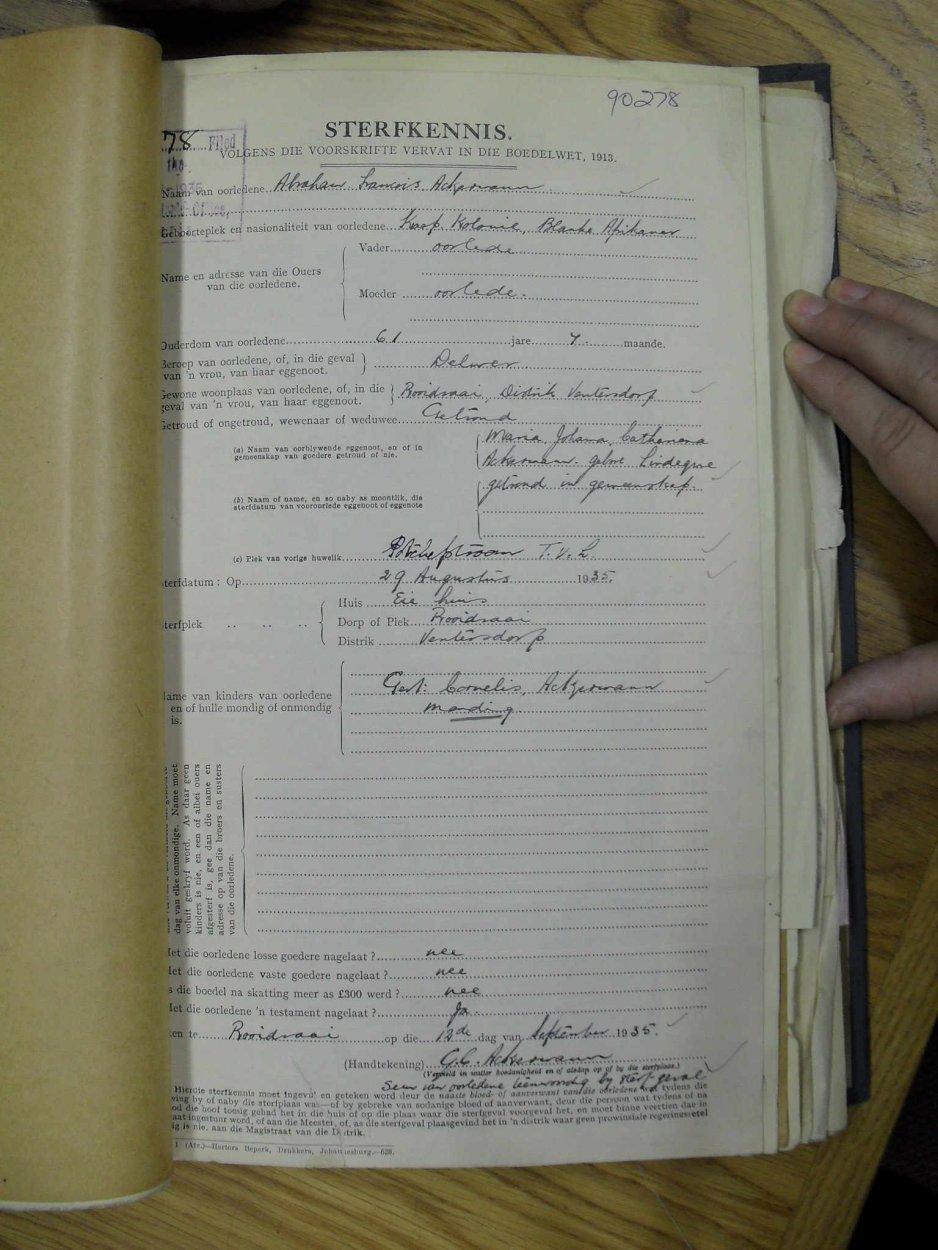 90278
STERFKENNIS.
VOLGENS DIE VOORSKRIFTE VERVAT IN DIE BOEDELWET, 1913.
78 Filed
Naam van oorledene Abraham Francois Ackermann
Geboorteplek en nasionaliteit van oorledene Kaap Kolonie, Blanke Afrikaner
Name en adresse van die Ouers van die oorledene.
Vader oorlede
Moeder oorlede.
Ouderdom van oorledene 61 jare 7 maande.
Beroep van oorledene, of, in die geval van 'n vrou, van haar eggenoot. Delwer
Gewone woonplaas van oorledene, of, in die geval van 'n vrou, van haar eggenoot. Rooidraai, Distrik Ventersdorp
Getroud of ongetroud, wewenaar of weduwee Getroud
(a) Naam van oorblywende eggenoot, en of in gemeenskap van goedere getroud of nie.
Maria Johana Catherina
Ackermann gebore Lindeque
getroud in gemeenskap.
(b) Naam of name, en so naby as moontlik, die sterfdatum van vooroorlede eggenoot of eggenote
(c) Plek van vorige huwelik Potchefstroom T.v.L
sterfdatum : Op 29 Augustus 1935.
sterfplek
Huis Eie huis
Dorp of Plek Rooidraai
Distrik Ventersdorp
Name van kinders van oorledene
en of hulle mondig of onmondig
is.
Gert Cornelis, Ackermann
mondig
dag van elke onmondige. Name moet
voluit geskryf word. As daar geen
kinders is nie, en een of albei ouers
afgesterf is, gee dan die name en
adresse op van die broers en susters
van die oorledene.
Het die oorledene losse goedere nagelaat ? nee
Het die oorledene vaste goedere nagelaat ? nee
Is die boedel na skatting meer as £300 werd ? nee
Het die oorledene 'n testament nagelaat ? Ja
ken te Rooidraai op die 12de dag van September 1935.
(Handtekening) G.C. Ackermann
(Vermeld in watter hoedanigheid en of aldaar op of by die sterfplaas.)
Seun van oorledene teenwoordig by sterfgeval
Hierdie sterfkennis moet ingevul en geteken word deur die naaste bloed- of aanverwant van die oorledene wat tydens die
ving by of naby die sterfplaas was—of by gebreke van sodanige bloed of aanverwant, deur die persoon wat tydens of na
ood die hoof toesig gehad het in die huis of op die plaas waar die sterfgeval voorgeval het, en moet binne veertien dae in
aat ingestuur word, of aan die Meester, of, as die sterfgeval plaasgevind het in 'n distrik waar geen provinsiale regeringsetel
ig is nie, aan die Magistraat van die Distrik.
1 (Afr.)—Hortors Beperk, Drukkers, Johannesburg.—628.